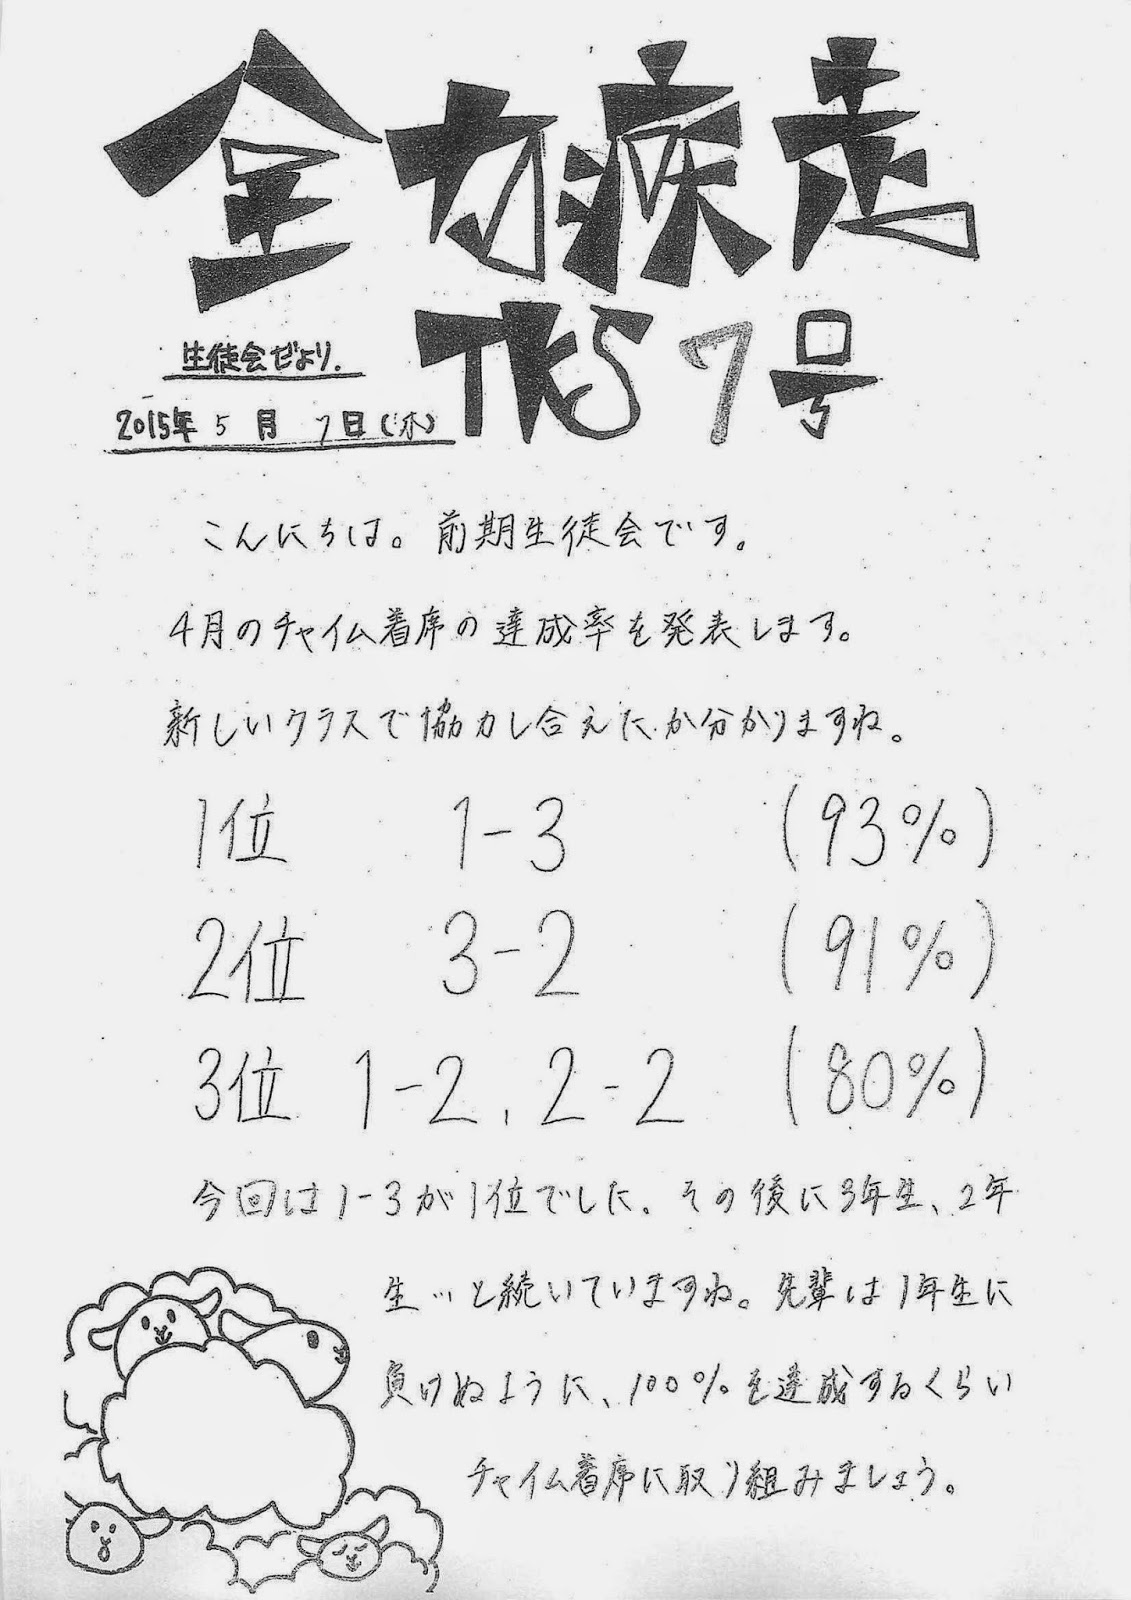 全力疾走
TKS 7号
生徒会だより.
2015年 5月 7日(木)
こんにちは。前期生徒会です。
4月のチャイム着席の達成率を発表します。
新しいクラスで協力し合えたか分かりますね。
1位 1-3 (93%)
2位 3-2 (91%)
3位 1-2, 2-2 (80%)
今回は1-3が1位でした。その後に3年生、2年
生…と続いていますね。先輩は1年生に
負けぬように、100%を達成するくらい
チャイム着席に取り組みましょう。